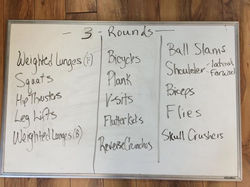 - 3 - Rounds -
Weighted Lunges (F)
Squats
Hip Thrustors
Leg Lifts
Weighted Lunges (B)
Bicycls
Plank
V-sits
Flutterkicks
Reverse Crunches
Ball Slams
Shoulder - lateral
forward
Biceps
Flies
Skull Crushers